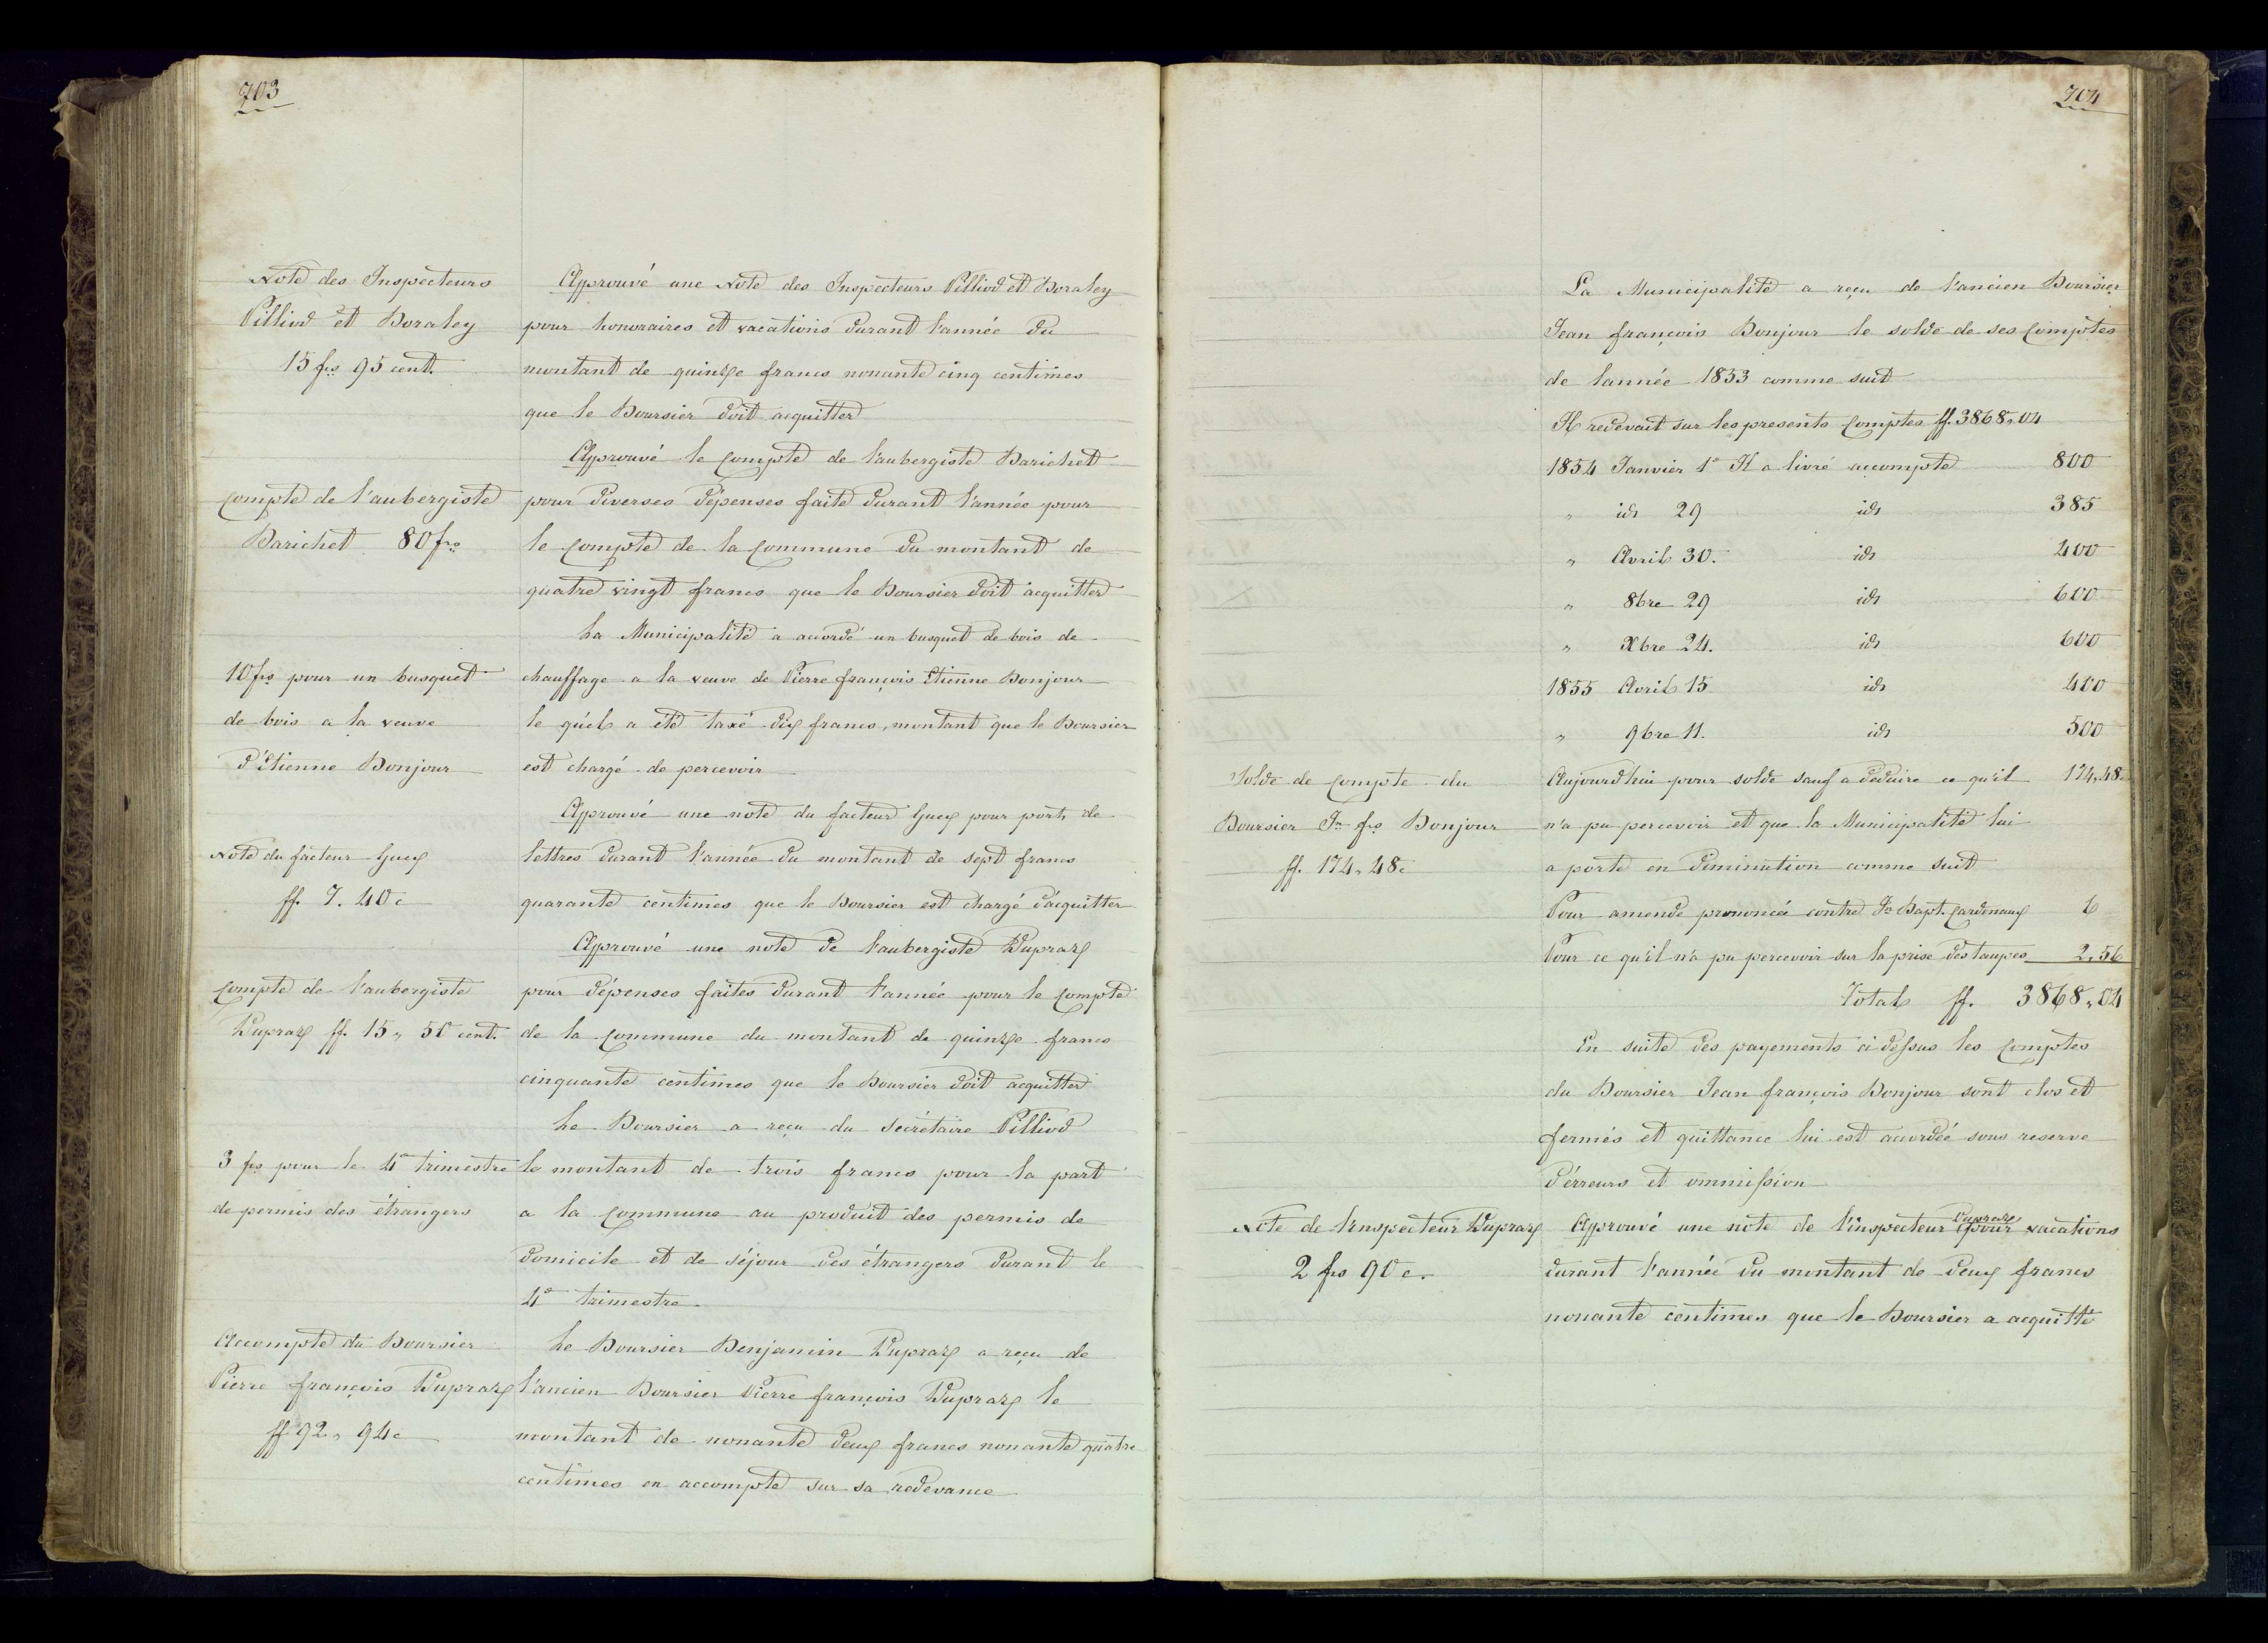 703
Note des Inspecteurs
Pilliod et Doraley
15 frs 95 cent.
Approuvé une Note des Inspecteurs Pilliod et Doraley
pour honoraires et vacations durant l'année du
montant de quinze francs nonante cinq centimes
que le Boursier doit acquitter
Compte de l'aubergiste
Barichet 80 frs
Approuvé le Compte de l'aubergiste Barichet
pour diverses dépenses faite durant l'année pour
le Compte de la Commune du montant de
quatre vingt francs que le Boursier doit acquitter
10 frs pour un busquet
de bois a la veuve
d'Etienne Bonjour
La Municipalité a accordé un busquet de bois de
chauffage a la veuve de Pierre françois Etienne Bonjour
le qu'el a été taxé dix francs, montant que le Boursier
est chargé de percevoir
Note du facteur Guex
ff. 7. 40 c
Approuvé une note du facteur Guex pour ports de
lettres durant l'année du montant de sept francs
quarante centimes que le Boursier est chargé d'acquitter
Compte de l'aubergiste
Dupraz ff. 15 „ 50 cent.
Approuvé une note de l'aubergiste Dupraz
pour dépenses faites durant l'année pour le Compte
de la Commune du montant de quinze francs
cinquante centimes que le Boursier doit acquitter
3 frs pour le 4e trimestre
de permis des étrangers
Le Boursier a reçu du Secrétaire Pilliod
le montant de trois francs pour la part
a la Commune au produit des permis de
domicile et de séjour des étrangers durant le
4e trimestre.
Accompte du Boursier
Pierre françois Dupraz
ff 92 „ 94 c
Le Boursier Benjamin Dupraz a reçu de
l'ancien Boursier Pierre françois Dupraz le
montant de nonante deux francs nonante quatre
centimes en accompte sur sa redevance
704
La Municipalité a reçu de l'ancien Boursier
Jean françois Bonjour le solde de ses Comptes
de lannée 1853 comme suit
Il redevait sur les presents Comptes ff. 3868 „ 04
1854 Janvier 1e Il a livré accompte 800
„ id 29 id 385
„ Avril 30. id 400
„ 8bre 29 id 600
„ Xbre 24. id 600
1855 Avril 15 id 400
„ 9bre 11. id 500
Solde de Compte du
Boursier Jn frs Bonjour
ff. 174 „ 48 c
Aujourd'hui pour solde sauf a déduire ce qu'il 174 „ 48
n'a pu percevoir et que la Municipalité lui
a porté en diminution comme suit
Pour amende prononcée contre Jn Bapt. Cardenaux 6
Pour ce qu'il n'a pu percevoir sur la prise des taupes 2 „ 56
Total ff. 3868 „ 04
En suite des payements ci dessus les Comptes
du Boursier Jean françois Bonjour sont clos et
fermés et quittance lui est accordée sous reserve
d'érreurs et ommission
Note de l'Inspecteur Dupraz
2 frs 90 c.
Approuvé une note de l'inspecteur Dupraz pour vacations
durant l'année du montant de deux francs
nonante centimes que le Boursier a acquitté